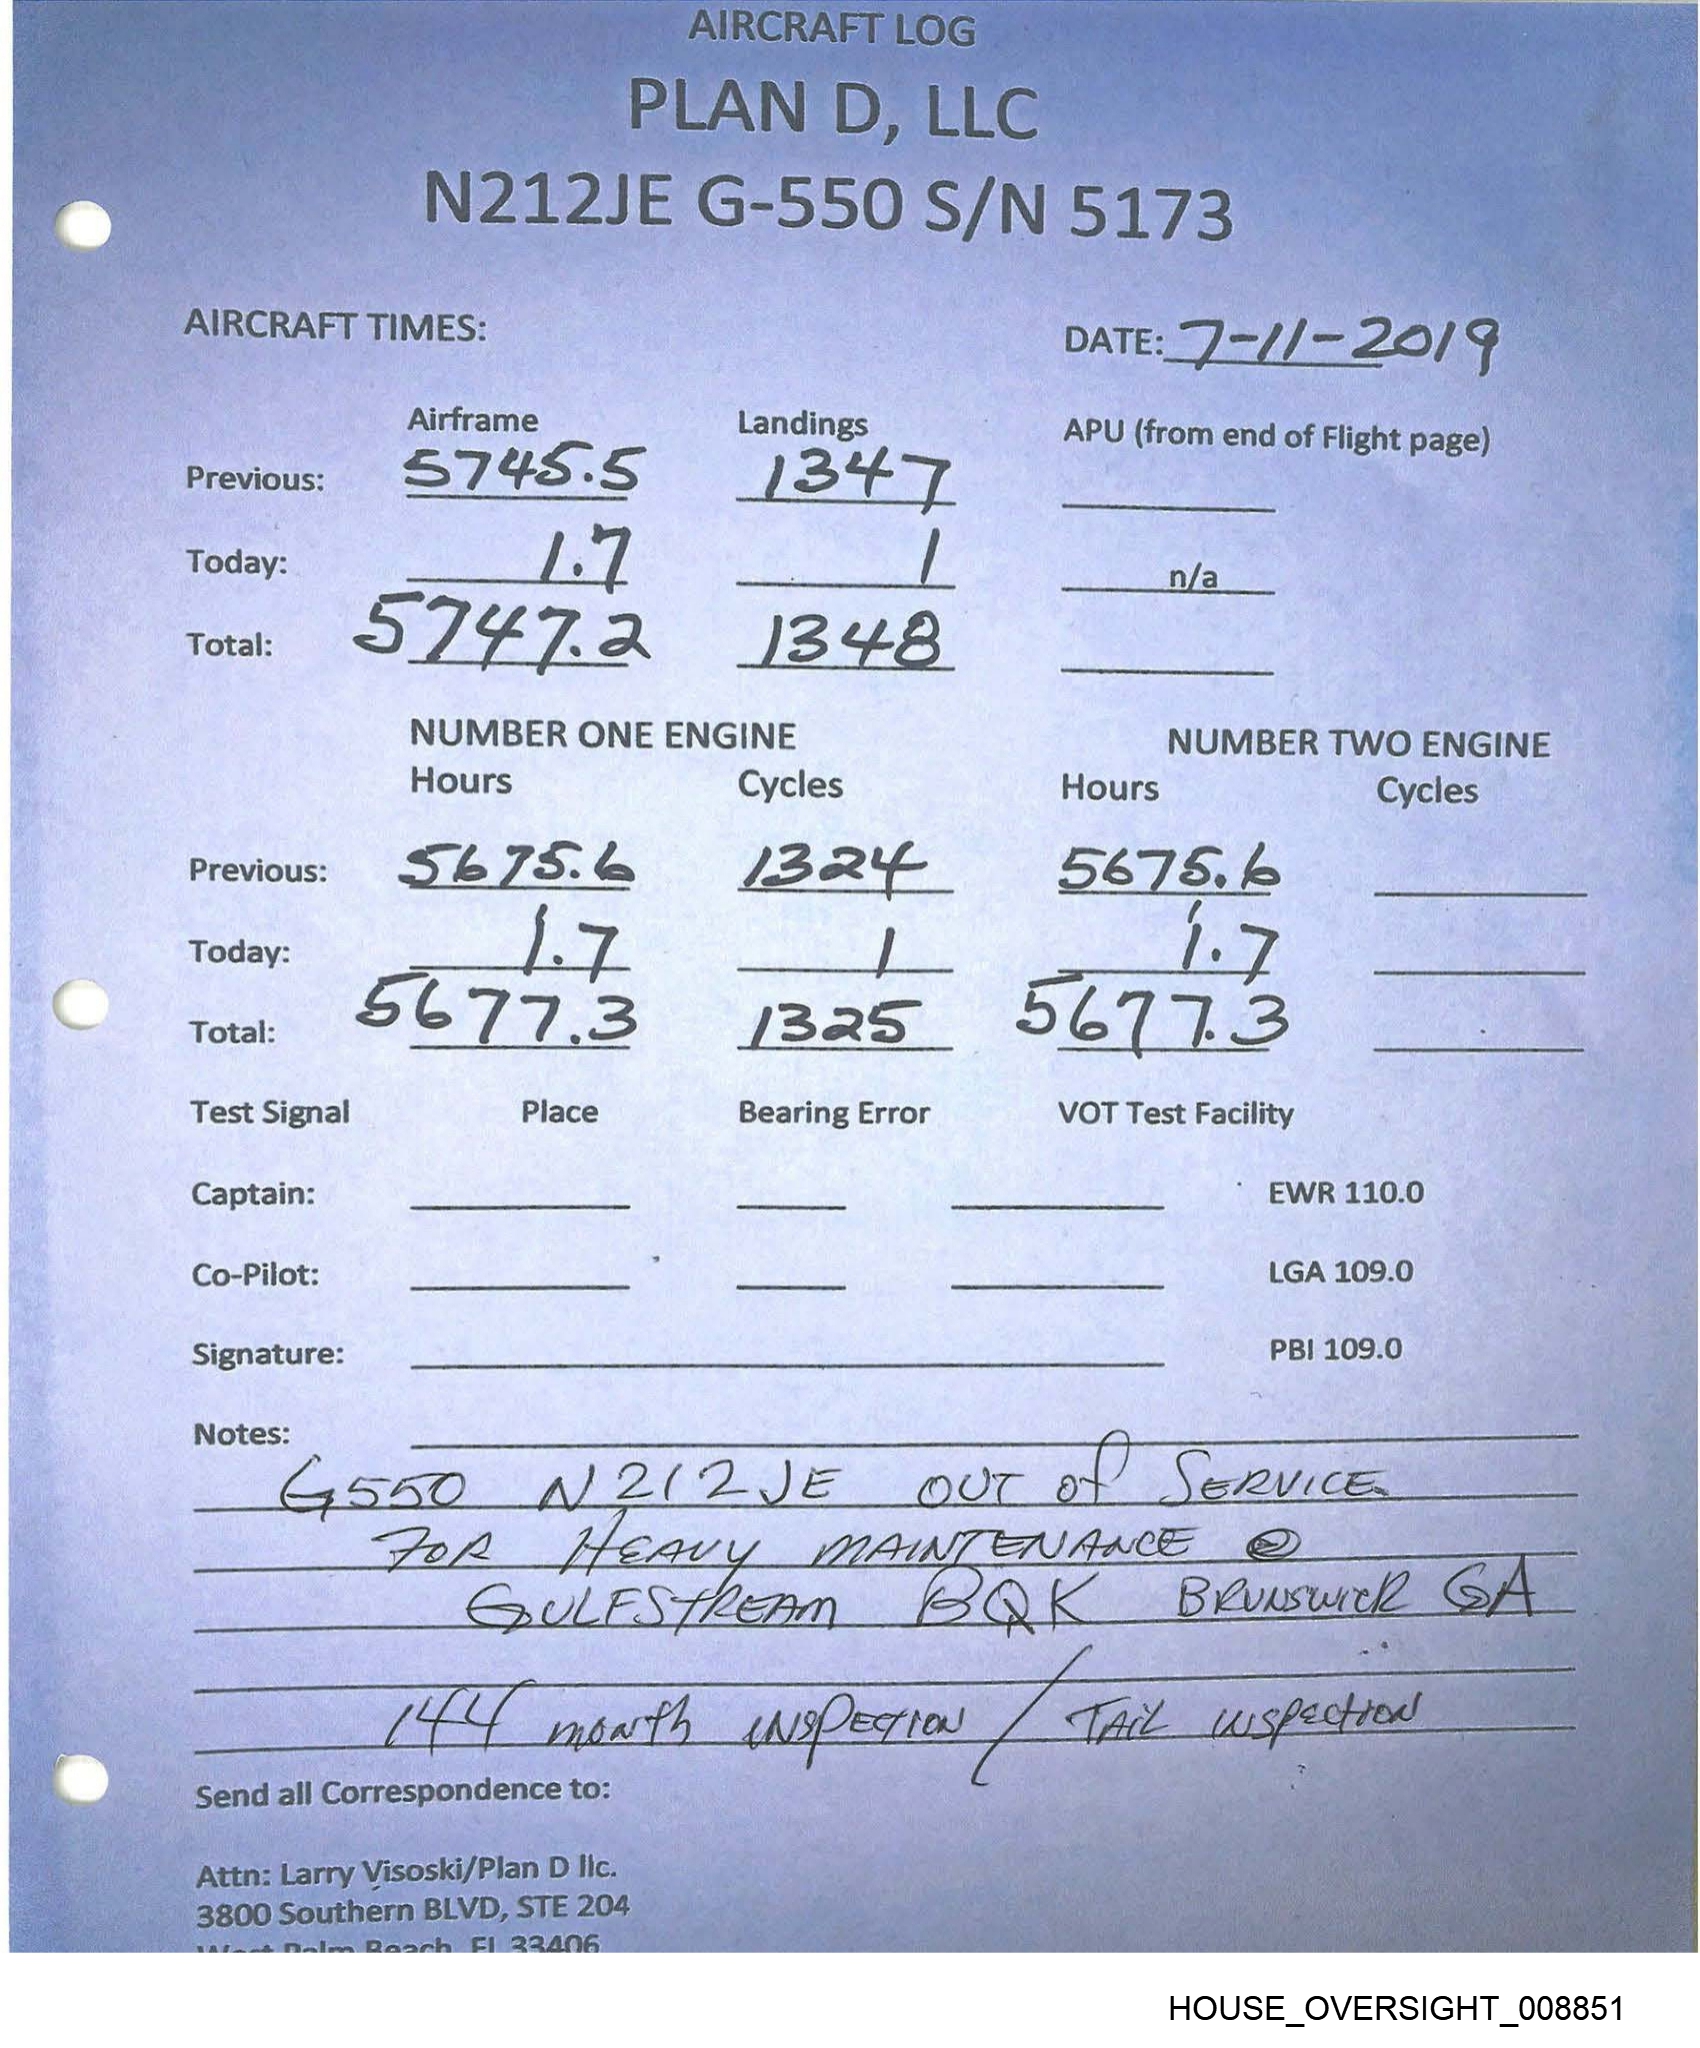 AIRCRAFT LOG
PLAN D, LLC
N212JE G-550 S/N 5173
AIRCRAFT TIMES: DATE: 7-11-2019
Airframe Landings APU (from end of Flight page)
Previous: 5745.5 1347
Today: 1.7 1 n/a
Total: 5747.2 1348
NUMBER ONE ENGINE NUMBER TWO ENGINE
Hours Cycles Hours Cycles
Previous: 5675.6 1324 5675.6
Today: 1.7 1 1.7
Total: 5677.3 1325 5677.3
Test Signal Place Bearing Error VOT Test Facility
Captain: EWR 110.0
Co-Pilot: LGA 109.0
Signature: PBI 109.0
Notes:
G550 N212JE OUT of SERVICE
FOR HEAVY MAINTENANCE @
GULFSTREAM BQK BRUNSWICK GA
144 month INSPECTION / TAIL INSPECTION
Send all Correspondence to:
Attn: Larry Visoski/Plan D llc.
3800 Southern BLVD, STE 204
West Palm Beach, FL 33406
HOUSE_OVERSIGHT_008851